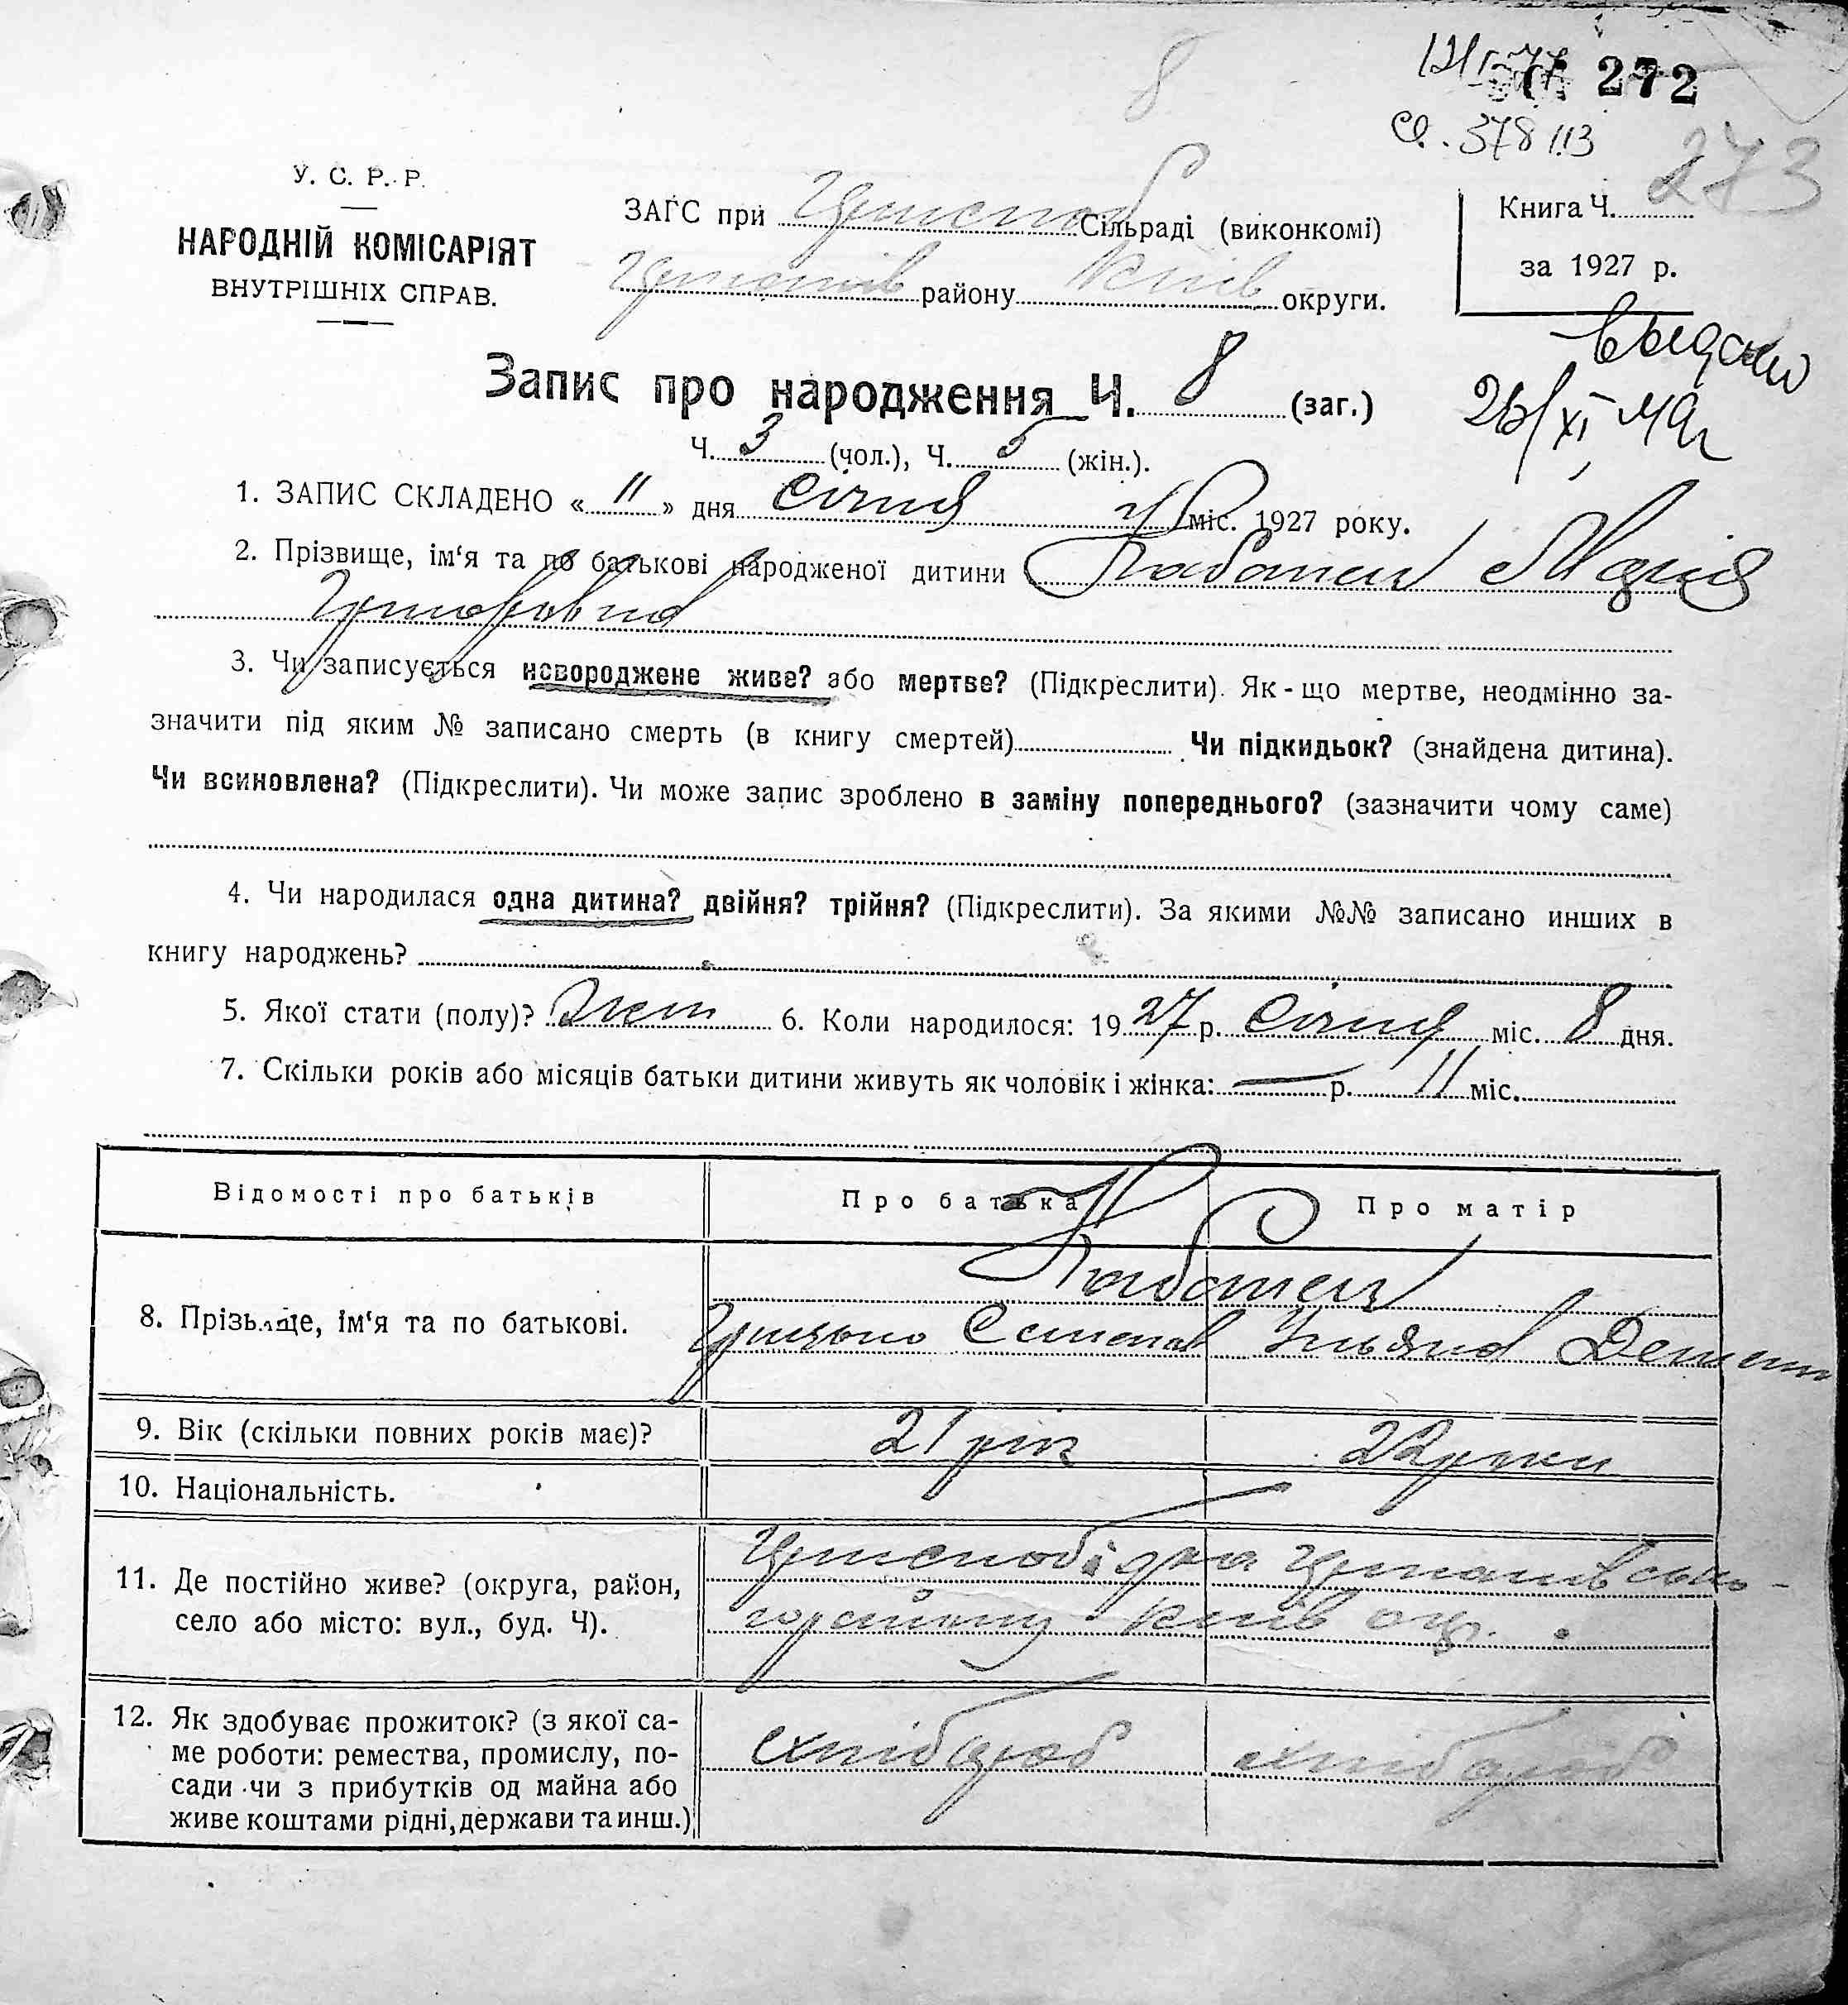 272
273
У. С. Р. Р.
НАРОДНІЙ КОМІСАРІЯТ
ВНУТРІШНІХ СПРАВ.
ЗАГС при Сільраді (виконкомі)
району Київ округи.
Книга Ч.
за 1927 р.
Запис про народження Ч. 8 (заг.)
Ч. 3 (чол.), Ч. 5 (жін.).
1. ЗАПИС СКЛАДЕНО « 11 » дня Січня міс. 1927 року.
2. Прізвище, ім‘я та по батькові народженої дитини Кабанец Марія
3. Чи записується новороджене живе? або мертве? (Підкреслити). Як-що мертве, неодмінно за-
значити під яким № записано смерть (в книгу смертей) Чи підкидьок? (знайдена дитина).
Чи всиновлена? (Підкреслити). Чи може запис зроблено в заміну попереднього? (зазначити чому саме)
4. Чи народилася одна дитина? двійня? трійня? (Підкреслити). За якими №№ записано инших в
книгу народжень?
5. Якої стати (полу)? Жет 6. Коли народилося: 1927 р. Січня міс. 8 дня.
7. Скільки років або місяців батьки дитини живуть як чоловік і жінка: — р. 11 міс.
Відомості про батьків Про батька Про матір
Кабанец
8. Прізвище, ім‘я та по батькові. Грицько Степан Ульяна
9. Вік (скільки повних років має)? 21 рік 22 роки
10. Національність.
11. Де постійно живе? (округа, район,
село або місто: вул., буд. Ч).
го району Київ окр.
12. Як здобуває прожиток? (з якої са-
ме роботи: ремества, промислу, по-
сади чи з прибутків од майна або
живе коштами рідні, держави та инш.)
хлібороб хлібороб